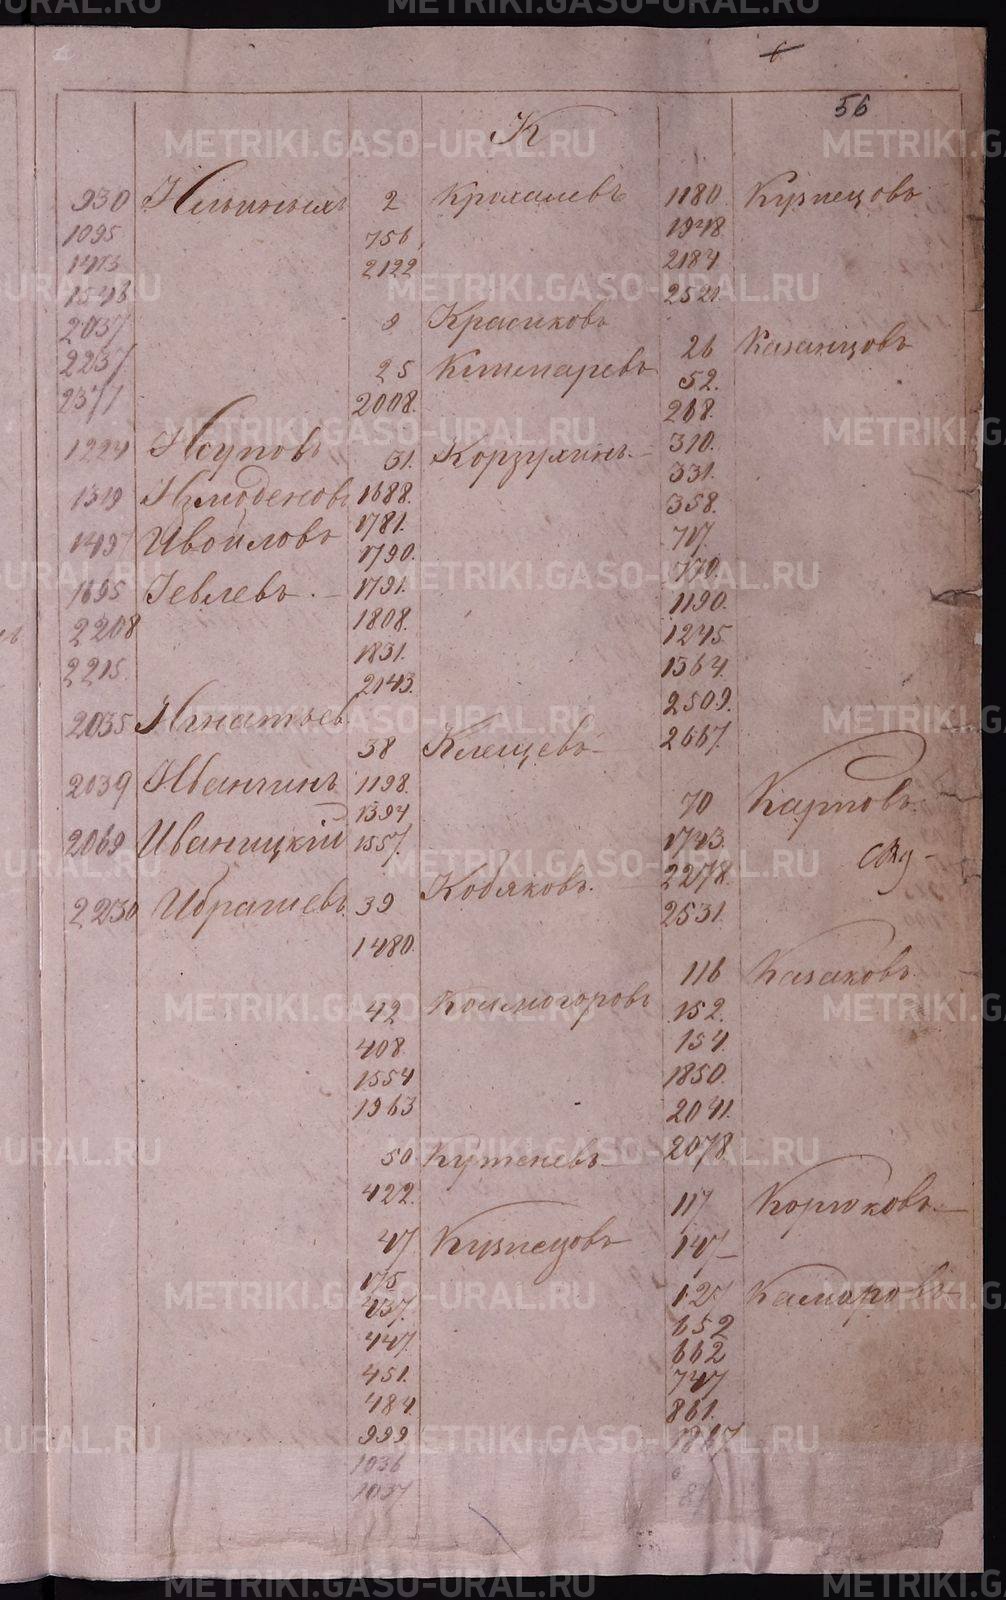 56
К
930 Ильиныхъ
1095
1473
1546
2037
2237
2371
1224 Исуповъ
1319 Измоденовъ
1497 Ивойловъ
1695 Іевлевъ. —
2208
2215.
2035 Игнатьев
2039 Иванчинъ
2069 Иваницкій
2230 Ибрагиевъ
2 Крохалевъ
756
2122
9 Красиковъ
25 Клшмаревъ
2008.
31. Корзухинъ. —
1688.
1781.
1790.
1791.
1808.
1831.
2143.
38 Клещевъ
1198.
1394
1557.
39 Кобяковъ.
1480.
42 Колмогоровъ
408.
1554
1963
50 Кутеневъ
422.
47 Кузнецовъ
175
437.
447.
451.
484
999
1036
1037
1180. Кузнецовъ
1948
2184
2521.
26 Казанцовъ
52.
268.
310.
331.
358.
717.
770.
1190.
1245.
1364.
2509.
2667.
70 Карповъ.
1743.
2278.
2531.
116 Казаковъ.
152.
154.
1850.
2041.
2078.
117 Корюковъ. —
147 —
127 Камаровъ
652
662
747
861.
1867
METRIKI.GASO-URAL.RU